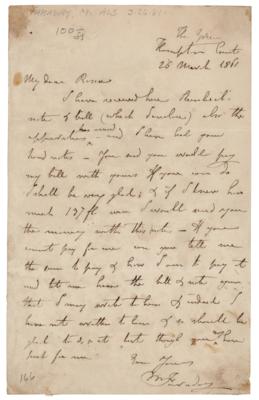 FARADAY, M. ALS 3.28.61
100
The Green
Hampton Court
28 March 1861
My dear
I have received here
note & bill (which I enclose) also the
apparatus has and I have had your
kind note - You said you would pay
my bill with yours If you can do
I shall be very glad; & if I knew how
much 137 fl was I would send you
the money with this note - If you
cannot pay for me can you tell me
the sum to pay & how I am to pay it
and let me have the bill & note again
that I may write to him & indeed I
have not written to him & so should be
glad to do it but through you Thank
for me
Ever Yours
M Faraday
166